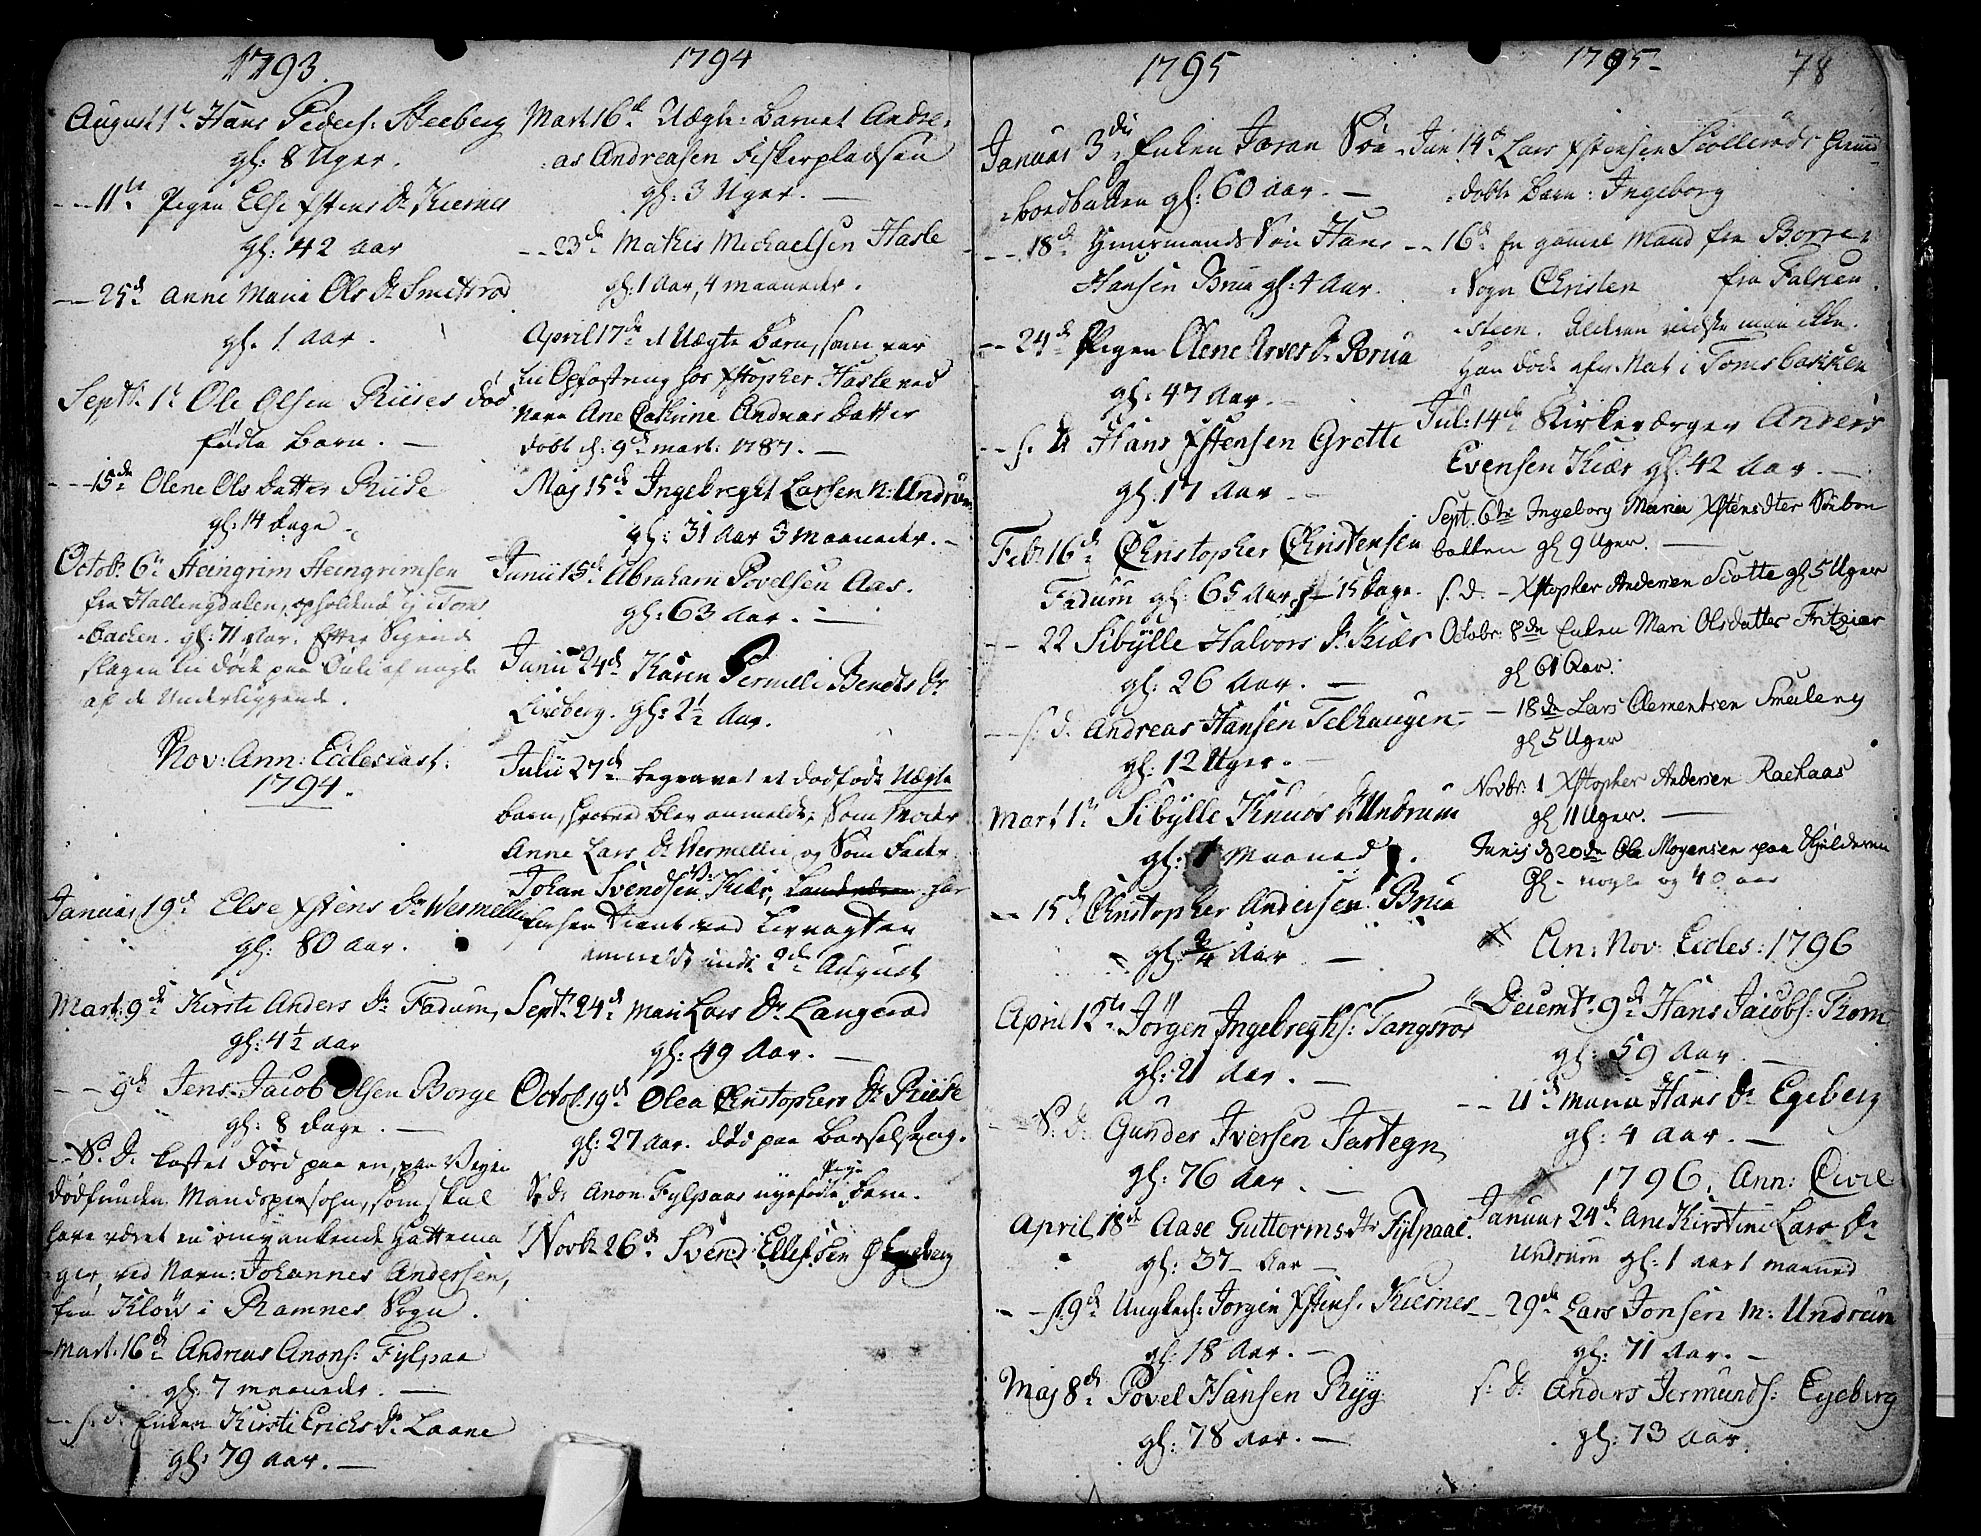 1793.
August 1te Hans Peders: Steeberg
gl: 8 Uger.
- - 11te Pigen Else Xstens Dr Kiernes
gl: 42 Aar
- - 25de Anne Maria Ols Dr Smittsrød
gl. 1 Aar.
Septbr. 1te Ole Olsen Riises død
fødte Barn. -
- - 15de Olene Ols Datter Riise
gl: 14 Dage -
Octob: 6te Steingrim Steingrimsen
fra Hallingdalen, opholdende sig i Toms
backen. gl: 71 Aar. Efter Sigende
slagen til døde paa af nogle
af de Underliggende.
Nov: Ann: Ecclesiast:
1794.
Januar 19de Else Xstens Dr Wermellie
gl: 80 Aar.
Mart: 9de Kirsti Anders Dr Fadum,
gl: 4½ Aar
- - 9de Jens Jacob Olsen Borge
gl: 8 Dage. -
- - S. D. kastet Jord paa en, paa Veyen
dødfunden Mandspersohn, som skal
have været en omvankende Hattema
ger, ved Navn: Johannes Andersen,
fra Kløu i Ramnes Sogn.
Mart. 16de Andreas Anons: Fylpaa
gl: 7 maaneder. -
- - s. d. Enken Kirsti Erichs Dr Laane
gl: 79 Aar. -
1794
Mart. 16de Uægte: Barnet Andre-
as Andreasen Fiskerpladsen
gl: 3 Uger. -
- - 23de Mathis Michaelsen Hasle
gl: 1 Aar, 4 maaneder.
April 17de et Uægte Barn, som var
til Opfostring hos Xstopher Hasle ved
Navn Ane Cathrine Andreas Datter
døbt d: 9de mart: 1787. -
Maj 15de Ingebreght Larsen N: Undrum
gl: 31 Aar 3 Maaneder. -
Junii 15de Abraham Povelsen Aas.
gl: 63 Aar. -
Junii 24de Karen Pernelle Bendts Dr
Lindberg. gl: 2½ Aar.
Julii 27de begravet et dødfødt Uægte
Barn, hvortil blev anmeldt, Som Moder
Anne Lars Dr Wermellie og Som Fader
Johan Svendsen Kiær, har
Tient ved Livvagten
anmeldt, indt 2de August
Septr. 24de Mari Lars Dr Langerød
gl: 49 Aar. -
Octob. 19de Olea Christophers Dr Riise
gl: 27 Aar. død paa Barselseng.
S. d: Anon Fylpaas nyefødte Pige Barn.
Novbr 26de Svend Ellefsen Egeberg
1795
Januar 3de Enken Joran Søe-
boedbatten gl: 60 Aar. -
- - 18de Huusmands Søn Hans
Hansen Bruu gl: 4 Aar.
- - 24de Pigen Olene Arves Dr Borua
gl: 47 Aar. -
- - s. d. Hans Xstensen Grette
gl: 17 Aar -
Feb: 16de Christopher Christensen
Fadum gl: 65 Aar, 15 Dage.
- - 22 Sibylle Halvors Dr Kiær
gl: 26 Aar. -
- - s. d. Andreas Hansen Telhaugen
gl: 12 Uger. -
Mart 1te Sibylle Knuds Dr Undrum
gl: 1 Maaned.
- - 15de Christopher Andersen Brua
gl: ¾ Aar -
April 12te Jørgen Ingebreghts: Tangsrød
gl: 21 Aar. -
- S. d: Gunder Iversen Jartegn
gl: 76 Aar. -
April 18de Aase Guttorms Dtr Fylpaae.
gl: 37 Aar -
- - 19de Ungkarl: Jørgen Xstens. Kiernes
gl: 18 Aar. -
Maj 8de Povel Hansen Ryg
gl: 78 Aar. -
1795 78
- Jun 14de Lars Xstensen Sciollerøds hiem-
døbte Barn: Ingeborg
- - 16de En gamel Mand fra Borre-
Sogn Christen fra Falken-
steen. Alderen vidste man ikke.
Han døde afv: Nat i Tomsbakken
Jul: 14de Kirkeværger Anders
Evensen Kiær gl: 42 Aar. -
Sept. 6te Ingeborg Maria Xstensdter Søebon
batten gl 9 Uger. -
s. d. - Xstopher Andersen Scotte gl 5 Uger
Octobr: 8de Enken Mari Olsdatter Fritziær
gl 61 Aar.
- 18de Lars Clementsen Smiberg
gl 5 Uger
Novbr: 1 Xstopher Andersen Raehaas
gl 11 Uger. -
Junij d 20de Ole Mogensen paa Skjelderen
gl - nogle og 40 aar
An: Nov: Eccles: 1796
Decembr. 9de Hans Jacobs: Thom
gl: 59 Aar. -
- - 11de Maria Hans Dr Egeberg
gl: 4 Aar. -
1796, Ann: Civil
Januar 24de Ane Kirstine Lars Dr
Undrum gl: 1 Aar 1 maaned
- - 29de Lars Jonsen M: Undrum
gl: 71 Aar. -
s. d: Anders Jermunds: Egeberg
gl: 73 Aar.